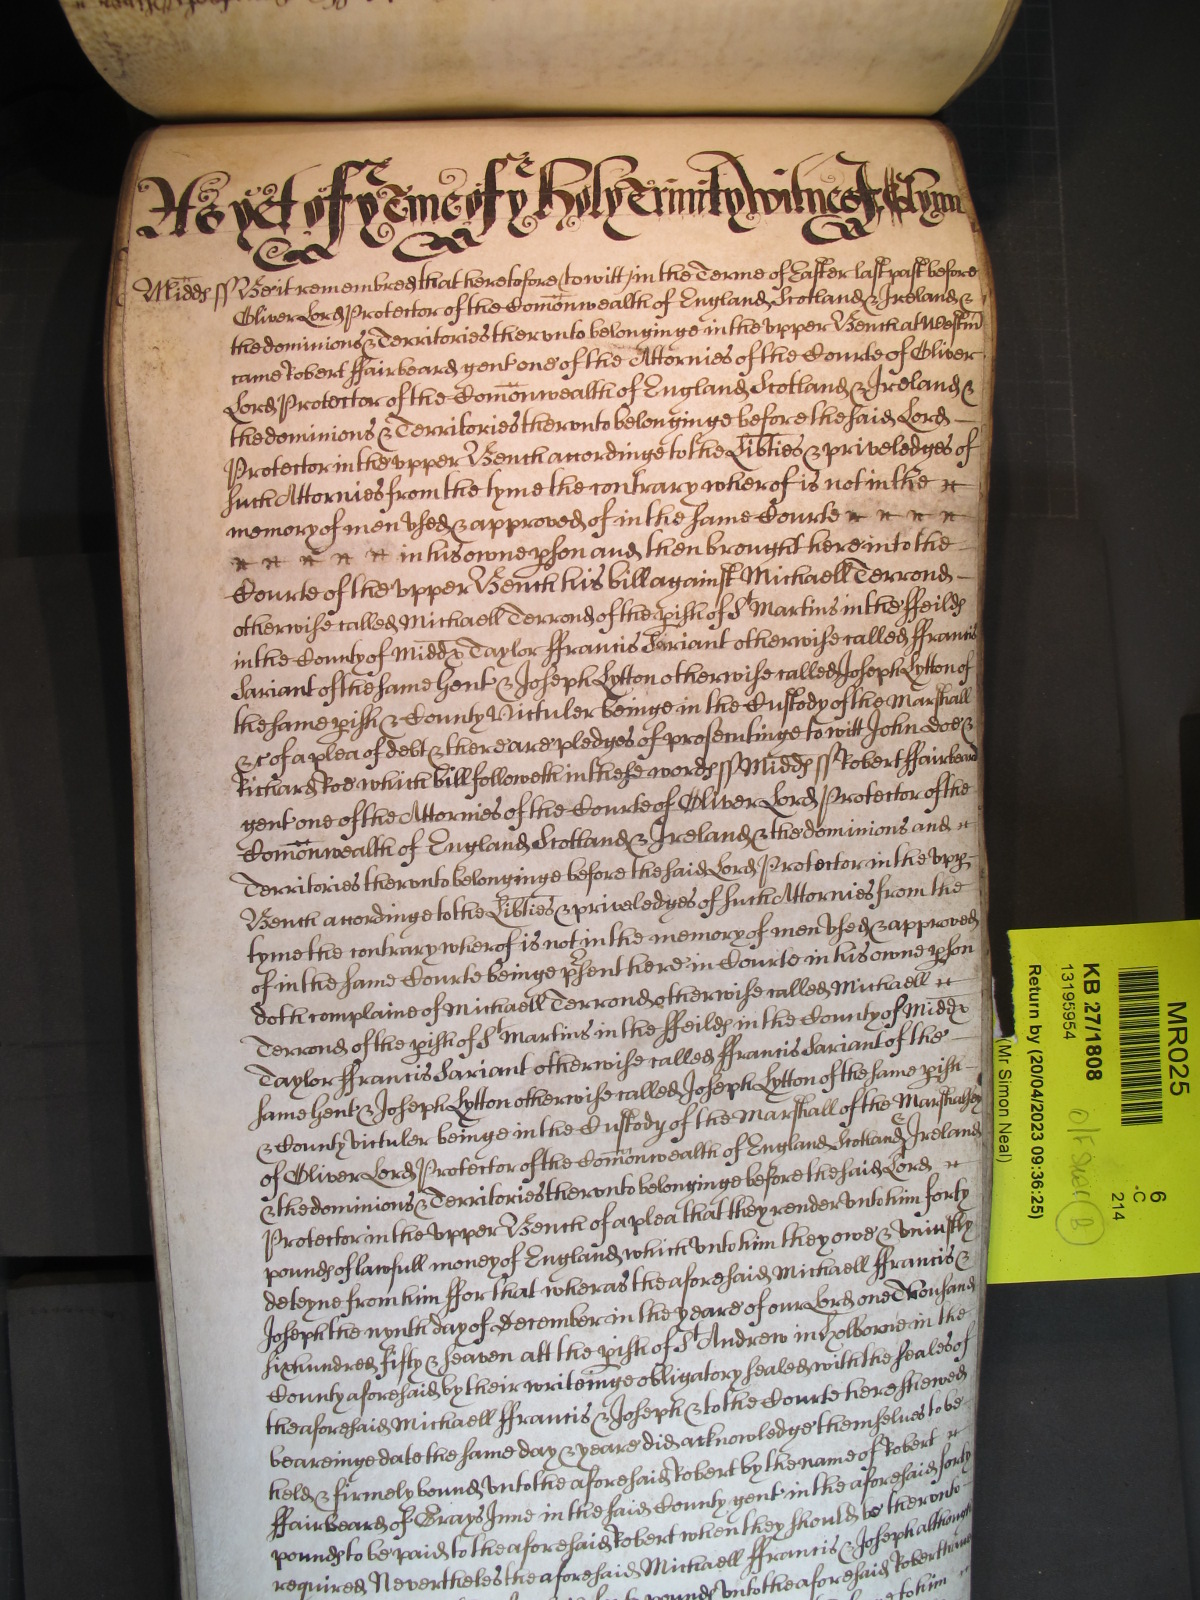 As yet of ye Terme of ye Holy Trinity Witnes J. Glynn
Midds ss Be it remembred that heretofore (to witt) in the Terme of Easter last past before
Oliver Lord Protector of the Comonwealth of England Scotland & Ireland &
the dominions & Territories thervnto belonginge in the vpper Bench at Westm
came Robert ffairbeard gent one of the Attornies of the Courte of Oliver
Lord Protector of the Comonwealth of England Scotland & Ireland &
the dominions & Territories thervnto belonginge before the said Lord
Protector in the vpper Bench accordinge to the Libties & priveledges of
such Attornies from the tyme the contrary wherof is not in the
memory of men vsed & approved of in the same Courte
in his owne pson and then brought here into the
Courte of the vpper Bench his bill against Michaell Terrond
otherwise called Michaell Terrond of the pish of St Martins in the ffeilds
in the County of Midds Taylor ffrancis Sariant otherwise called ffrancis
Sariant of the same Gent & Joseph Lytton otherwise called Joseph Lytton of
the same pish & County Victuler beinge in the Custody of the Marshall
&c of a plea of debt & there are pledges of prosecutinge to witt John Doe &
Richard Roe which bill followeth in these words ss Midds ss Robert ffairbeard
gent one of the Attornies of the Courte of Oliver Lord Protector of the
Comonwealth of England Scotland & Ireland & the dominions and
Territories thervnto belonginge before the said Lord Protector in the vpp
Bench accordinge to the Libties & priveledges of such Attornies from the
tyme the contrary wherof is not in the memory of men vsed & approved
of in the same Courte beinge psent here in Courte in his owne pson
doth complaine of Michaell Terrond otherwise called Michaell
Terrond of the pish of St Martins in the ffeilds in the County of Midds
Taylor ffrancis Sariant otherwise called ffrancis Sariant of the
same Gent & Joseph Lytton otherwise called Joseph Lytton of the same pish
& County victuler beinge in the Custody of the Marshall of the Marshalsey
of Oliver Lord Protector of the Comonwealth of England Scotland & Ireland
& the dominions & Territories thervnto belonginge before the said Lord
Protector in the vpper Bench of a plea that they render vnto him forty
pounds of lawfull money of England which vnto him they owe & vniustly
deteyne from him ffor that wheras the aforesaid Michaell ffrancis &
Joseph the nynth day of December in the yeare of our Lord one Thousand
six hundred fifty & seaven att the pish of St Andrew in Holborne in the
County aforesaid by their writeinge obligatory sealed with the seales of
the aforesaid Michaell ffrancis & Joseph & to the Courte here shewed
beareinge date the same day & yeare did acknowledge themselues to be
held & firmely bound vnto the aforesaid Robert by the name of Robert
ffairbeard of Grays Inne in the said County gent in the aforesaid forty
pounds to be paid to the aforesaid Robert when they should be thervnto
required Nevertheles the aforesaid Michaell ffrancis & Joseph although
pounds vnto the aforesaid Robert
to him
MR025
KB 27/1808
13195954
Return by (20/04/2023 09:36:25)
(Mr Simon Neal)
6
-C
214